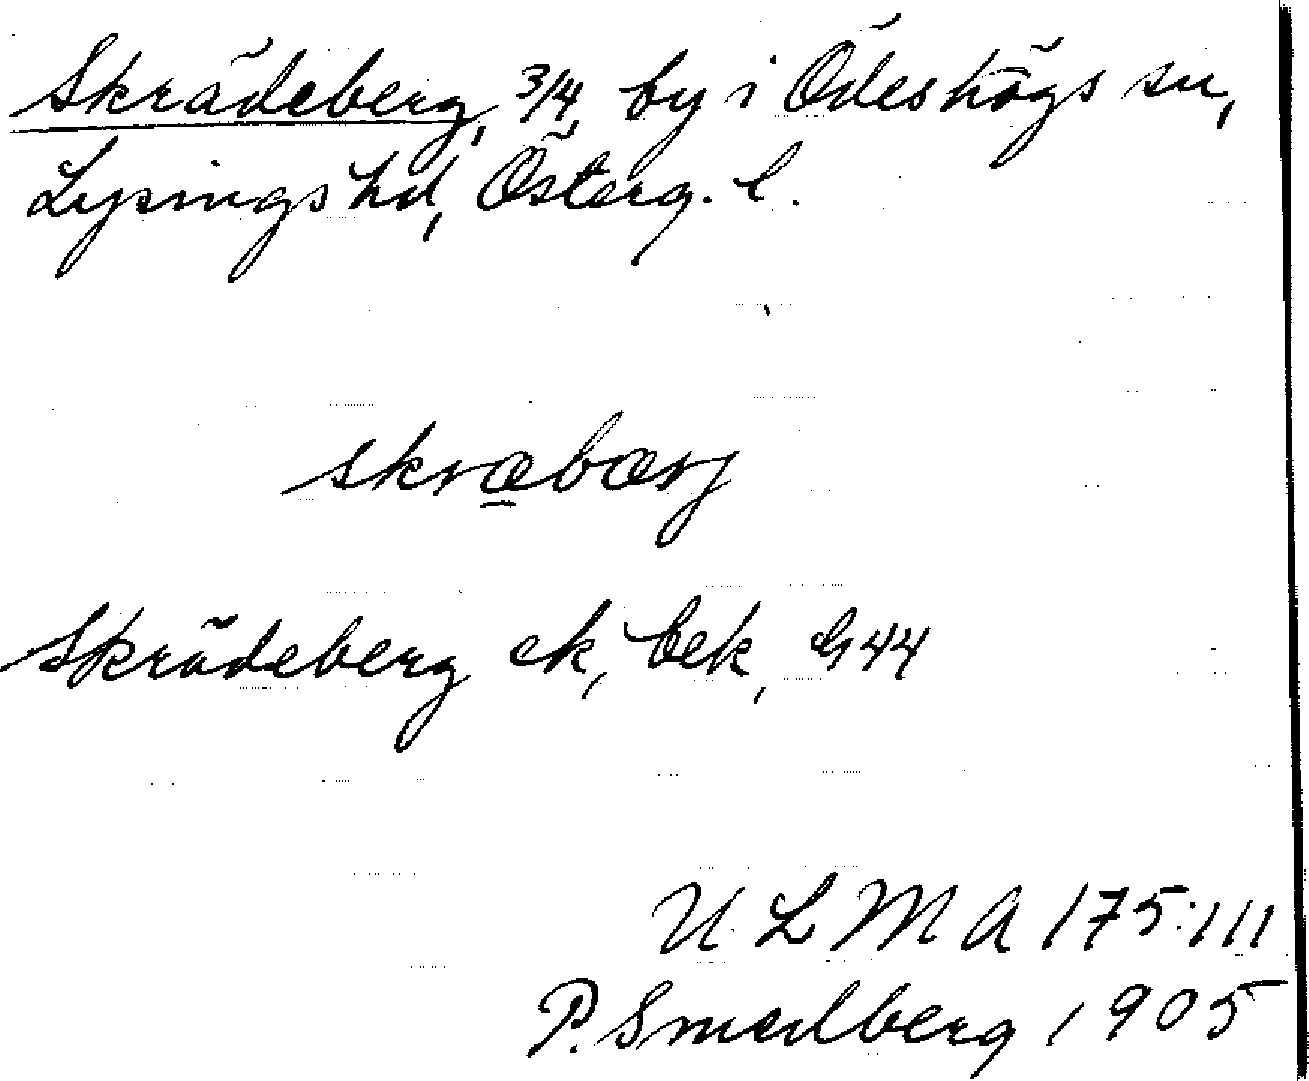 Skrädeberg, 3/4, by i Ödeshögs sn,
Lysings hd, Österg. l.
skræbærj
Skrädeberg ek, bek, G44
U L M A 175:111
P. Smedberg 1905